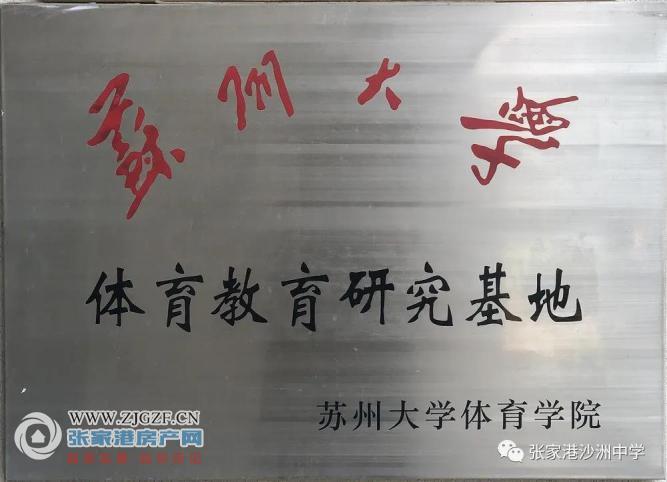 蘇州大學
体育教育研究基地
苏州大学体育学院
WWW.ZJGZF.CN
张家港房产网
张家港沙洲中学